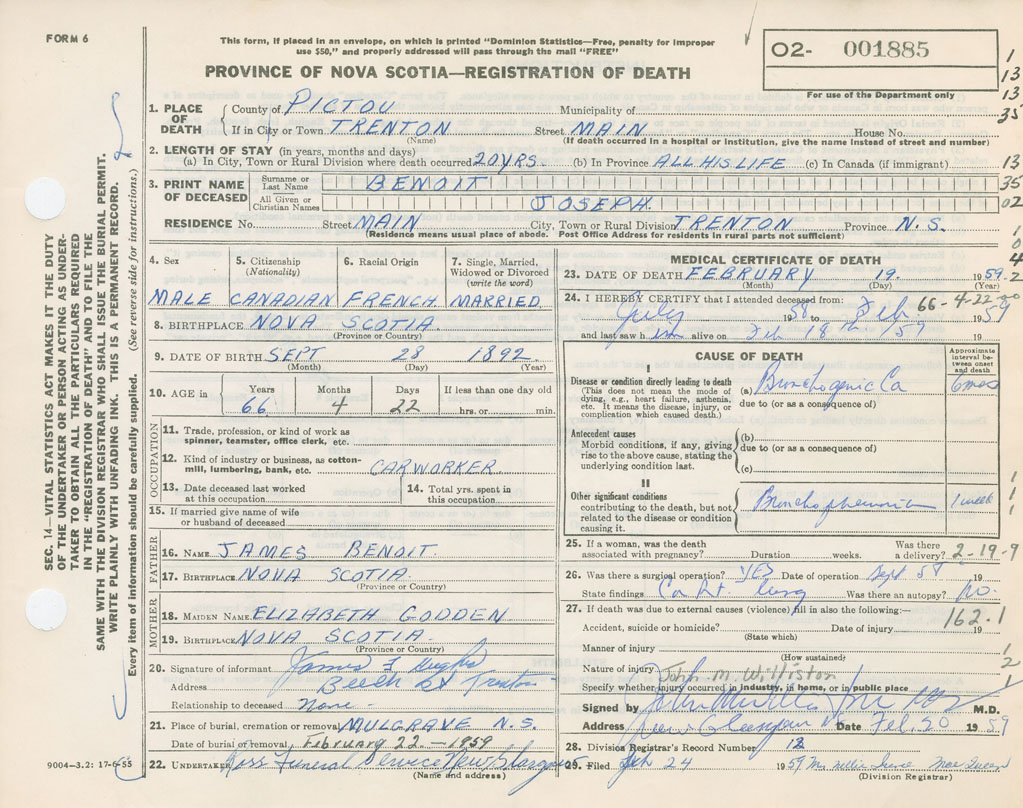 FORM 6
This form, if placed in an envelope, on which is printed "Dominion Statistics—Free, penalty for improper
use $50," and properly addressed will pass through the mail "FREE"
02- 001885
For use of the Department only
PROVINCE OF NOVA SCOTIA—REGISTRATION OF DEATH
1
13
13
35
13
35
02
1
0
4
2
SEC. 14—VITAL STATISTICS ACT MAKES IT THE DUTY
OF THE UNDERTAKER OR PERSON ACTING AS UNDER-
TAKER TO OBTAIN ALL THE PARTICULARS REQUIRED
IN THE "REGISTRATION OF DEATH" AND TO FILE THE
SAME WITH THE DIVISION REGISTRAR WHO SHALL ISSUE THE BURIAL PERMIT.
WRITE PLAINLY WITH UNFADING INK. THIS IS A PERMANENT RECORD.
Every item of information should be carefully supplied. (See reverse side for instructions.)
1. PLACE OF DEATH County of PICTOU Municipality of
If in City or Town TRENTON Street MAIN House No.
(Name) (If death occurred in a hospital or institution, give the name instead of street and number)
2. LENGTH OF STAY (in years, months and days)
(a) In City, Town or Rural Division where death occurred 20 YRS. (b) In Province ALL HIS LIFE (c) In Canada (if immigrant)
3. PRINT NAME OF DECEASED Surname or Last Name BENOIT
All Given or Christian Names JOSEPH
RESIDENCE No. Street MAIN City, Town or Rural Division TRENTON Province N.S.
(Residence means usual place of abode. Post Office Address for residents in rural parts not sufficient)
4. Sex 5. Citizenship (Nationality) 6. Racial Origin 7. Single, Married, Widowed or Divorced (write the word)
MALE CANADIAN FRENCH MARRIED
8. BIRTHPLACE NOVA SCOTIA
(Province or Country)
9. DATE OF BIRTH SEPT 28 1892
(Month) (Day) (Year)
10. AGE in Years Months Days If less than one day old
66 4 22 hrs. or min.
OCCUPATION
11. Trade, profession, or kind of work as
spinner, teamster, office clerk, etc.
12. Kind of industry or business, as cotton-
mill, lumbering, bank, etc. CAR WORKER
13. Date deceased last worked at this occupation 14. Total yrs. spent in this occupation
15. If married give name of wife
or husband of deceased
FATHER
16. NAME JAMES BENOIT
17. BIRTHPLACE NOVA SCOTIA
(Province or Country)
MOTHER
18. MAIDEN NAME ELIZABETH GODDEN
19. BIRTHPLACE NOVA SCOTIA
(Province or Country)
20. Signature of informant James F Hughes
Address Beech St Trenton
Relationship to deceased None -
21. Place of burial, cremation or removal MULGRAVE N.S.
Date of burial or removal February 22 - 1959
22. UNDERTAKER Ross Funeral Service New Glasgow
(Name and address)
9004—3.2: 17-6-55
MEDICAL CERTIFICATE OF DEATH
23. DATE OF DEATH FEBRUARY 19. 1959
(Month) (Day) (Year)
24. I HEREBY CERTIFY that I attended deceased from: 66-4-22-00
July 1958 to Feb 1959
and last saw him alive on Feb 18th 59
CAUSE OF DEATH
Approximate interval between onset and death
I
Disease or condition directly leading to death (a) Bronchogenic Ca 6 mos
(This does not mean the mode of
dying, e.g., heart failure, asthenia,
etc. It means the disease, injury, or
complication which caused death.)
due to (or as a consequence of)
Antecedent causes (b)
Morbid conditions, if any, giving
rise to the above cause, stating the
underlying condition last.
due to (or as a consequence of)
(c)
II
Other significant conditions
contributing to the death, but not
related to the disease or condition
causing it.
Bronchopneumonia 1 week
1
1
25. If a woman, was the death associated with pregnancy? Duration weeks. Was there a delivery? 2-19-9
26. Was there a surgical operation? YES Date of operation Sept 58 19
State findings Ca Rt. lung Was there an autopsy? no.
27. If death was due to external causes (violence) fill in also the following:—
162.1
Accident, suicide or homicide? Date of injury 19
(State which)
Manner of injury
(How sustained)
1
2
1
Nature of injury John M. Williston
Specify whether injury occurred in industry, in home, or in public place
Signed by M.D.
Address New Glasgow Date Feb. 20 1959
28. Division Registrar's Record Number 12
29. Filed Feb 24 1959 Mrs Nellie Irene MacQueen
(Division Registrar)